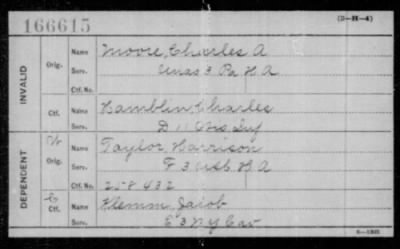 166615
(3—H—4)
INVALID
Orig.
Name Moore, Charles A
Serv. Unas 3 Pa H A
Ctf. No.
Ctf.
Name Hamblin, Charles
Serv. D 11 Inf
DEPENDENT
W
Orig.
Name Taylor Harrison
Serv. F 3 H A
Ctf. No. 258 432
Ctf.
Name Klemm, Jacob
Serv. E 3 NY Cav
6—1325